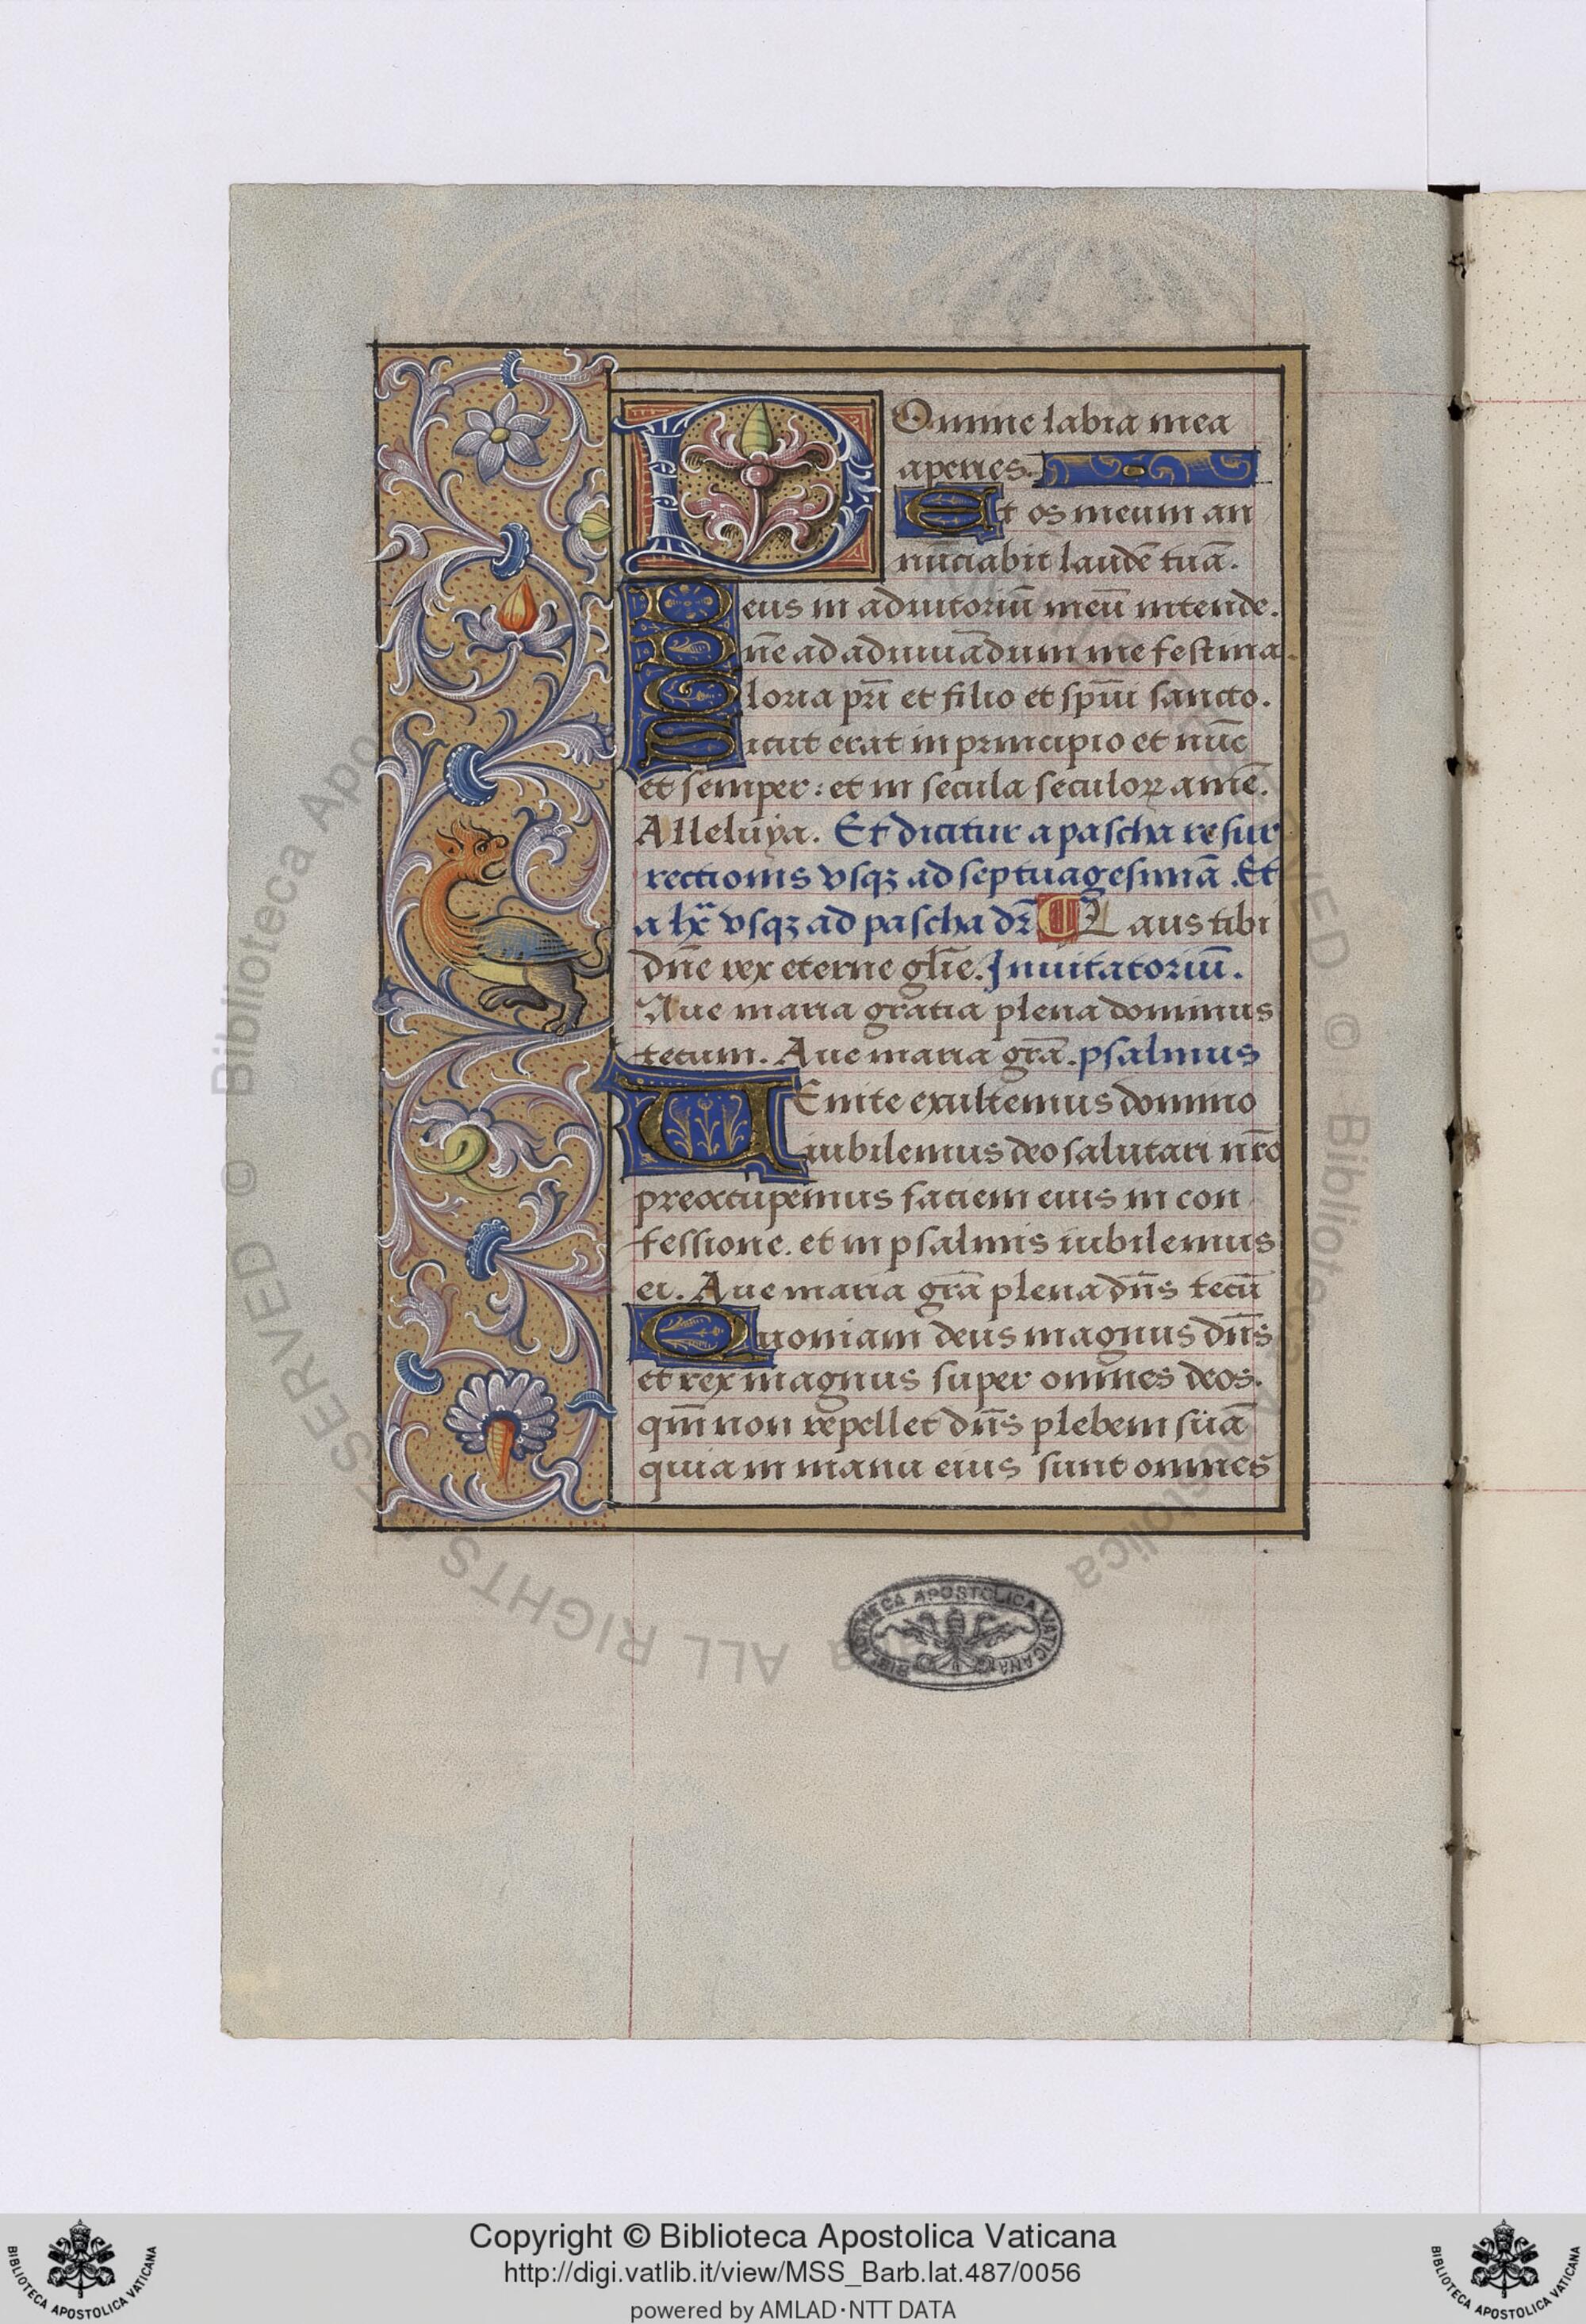 DOmine labia mea
aperies.
Et os meum an
nūciabit laudē tuā.
Deus in adiutoriū meū intende.
Dn̄e ad adiuuādum me festina.
Gloria pr̄i et filio et sp̄iui sancto.
Sicut erat in principio et nūc
et semper: et in secula seculoꝝ amē.
Alleluya. Et dicitur a pascha resur
rectionis vsqꝫ ad septuagesimā. Et
a lxx vsqꝫ ad pascha dr̄ Laus tibi
dn̄e rex eterne gl̄ie. Inuitatoriū.
Aue maria gratia plena dominus
tecum. Aue maria gr̄a. psalmus
UEnite exultemus domino
iubilemus deo salutari nr̄o
preoccupemus faciem eius in con
fessione. et in psalmis iubilemus
ei. Aue maria gr̄a plena dn̄s tecū
Quoniam deus magnus dn̄s
et rex magnus super omnes deos.
qm̄ non repellet dn̄s plebem suā
quia in manu eius sunt omnes
BIBLIOTHECA APOSTOLICA VATICANA
Biblioteca Apostolica Vaticana ALL RIGHTS RESERVED ©
Copyright © Biblioteca Apostolica Vaticana
http://digi.vatlib.it/view/MSS_Barb.lat.487/0056
powered by AMLAD·NTT DATA
BIBLIOTECA APOSTOLICA VATICANA
BIBLIOTECA APOSTOLICA VATICANA